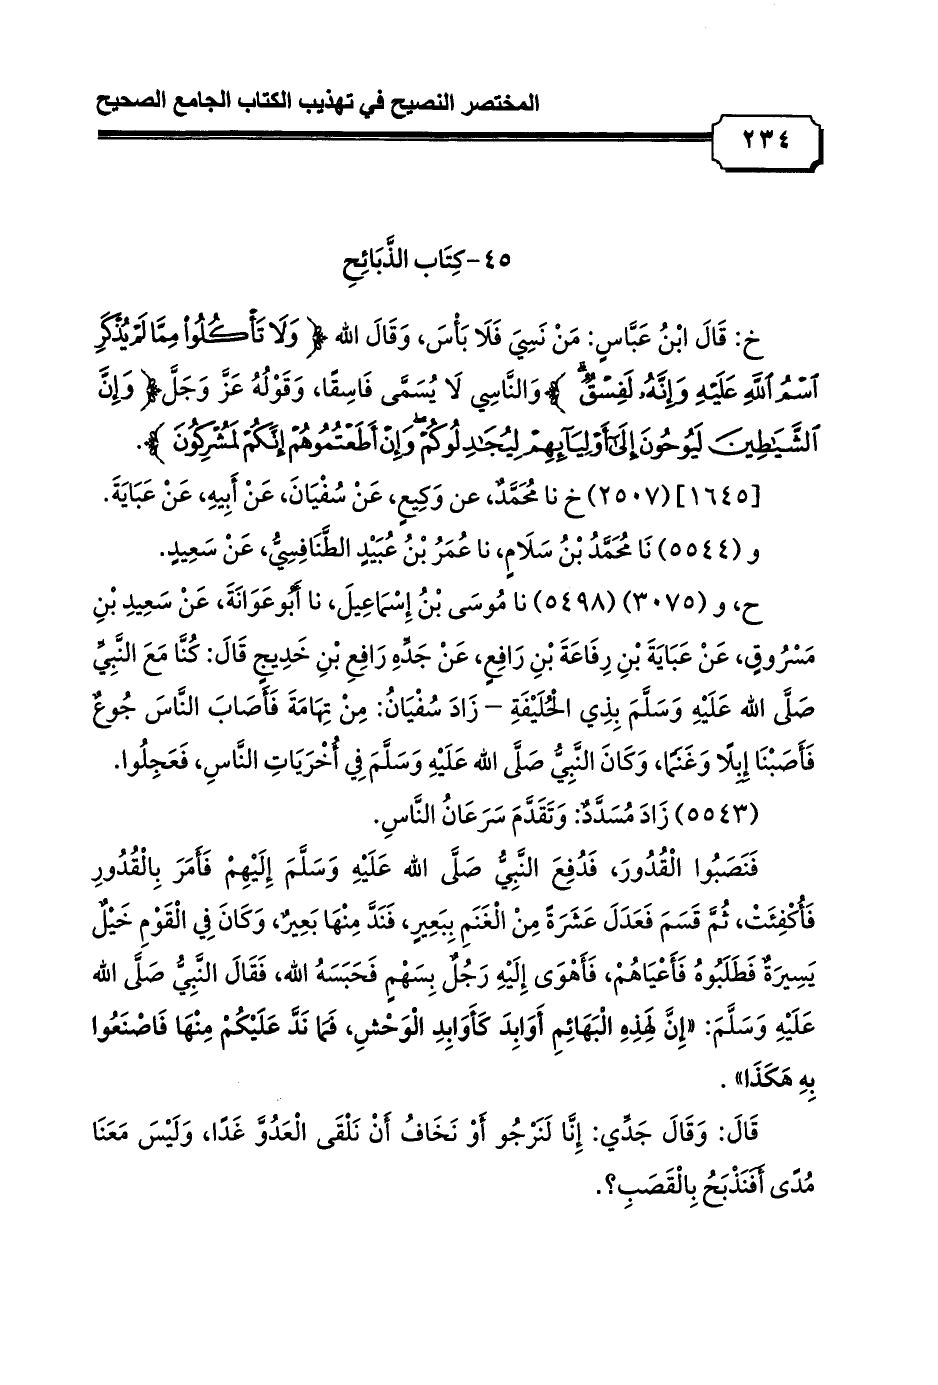 المختصر النصيح في تهذيب الكتاب الجامع الصحيح
٢٣٤
٤٥- كِتَاب الذَّبَائِحِ
خ: قَالَ ابْنُ عَبَّاسٍ: مَنْ نَسِيَ فَلَا بَأْسَ، وَقَالَ الله ﴿وَلَا تَأْكُلُوا۟ مِمَّا لَمْ يُذْكَرِ
ٱسْمُ ٱللَّهِ عَلَيْهِ وَإِنَّهُۥ لَفِسْقٌ ۗ﴾ وَالنَّاسِي لَا يُسَمَّى فَاسِقًا، وَقَوْلُهُ عَزَّ وَجَلَّ ﴿وَإِنَّ
ٱلشَّيَٰطِينَ لَيُوحُونَ إِلَىٰٓ أَوْلِيَآئِهِمْ لِيُجَٰدِلُوكُمْ ۖ وَإِنْ أَطَعْتُمُوهُمْ إِنَّكُمْ لَمُشْرِكُونَ﴾.
[١٦٤٥] (٢٥٠٧) خ نا مُحَمَّدٌ، عن وَكِيعٍ، عَنْ سُفْيَانَ، عَنْ أَبِيهِ، عَنْ عَبَايَةَ.
و (٥٥٤٤) نَا مُحَمَّدُ بْنُ سَلَامٍ، نا عُمَرُ بْنُ عُبَيْدٍ الطَّنَافِسِيُّ، عَنْ سَعِيدٍ.
ح، و (٣٠٧٥) (٥٤٩٨) نا مُوسَى بْنُ إِسْمَاعِيلَ، نا أَبُو عَوَانَةَ، عَنْ سَعِيدِ بْنِ
مَسْرُوقٍ، عَنْ عَبَايَةَ بْنِ رِفَاعَةَ بْنِ رَافِعٍ، عَنْ جَدِّهِ رَافِعِ بْنِ خَدِيجٍ قَالَ: كُنَّا مَعَ النَّبِيِّ
صَلَّى الله عَلَيْهِ وَسَلَّمَ بِذِي الْحُلَيْفَةِ – زَادَ سُفْيَانُ: مِنْ تِهَامَةَ فَأَصَابَ النَّاسَ جُوعٌ
فَأَصَبْنَا إِبِلًا وَغَنَمًا، وَكَانَ النَّبِيُّ صَلَّى الله عَلَيْهِ وَسَلَّمَ فِي أُخْرَيَاتِ النَّاسِ، فَعَجِلُوا.
(٥٥٤٣) زَادَ مُسَدَّدٌ: وَتَقَدَّمَ سَرَعَانُ النَّاسِ.
فَنَصَبُوا الْقُدُورَ، فَدُفِعَ النَّبِيُّ صَلَّى الله عَلَيْهِ وَسَلَّمَ إِلَيْهِمْ فَأَمَرَ بِالْقُدُورِ
فَأُكْفِئَتْ، ثُمَّ قَسَمَ فَعَدَلَ عَشَرَةً مِنْ الْغَنَمِ بِبَعِيرٍ، فَنَدَّ مِنْهَا بَعِيرٌ، وَكَانَ فِي الْقَوْمِ خَيْلٌ
يَسِيرَةٌ فَطَلَبُوهُ فَأَعْيَاهُمْ، فَأَهْوَى إِلَيْهِ رَجُلٌ بِسَهْمٍ فَحَبَسَهُ الله، فَقَالَ النَّبِيُّ صَلَّى الله
عَلَيْهِ وَسَلَّمَ: «إِنَّ لِهَذِهِ الْبَهَائِمِ أَوَابِدَ كَأَوَابِدِ الْوَحْشِ، فَمَا نَدَّ عَلَيْكُمْ مِنْهَا فَاصْنَعُوا
بِهِ هَكَذَا» .
قَالَ: وَقَالَ جَدِّي: إِنَّا لَنَرْجُو أَوْ نَخَافُ أَنْ نَلْقَى الْعَدُوَّ غَدًا، وَلَيْسَ مَعَنَا
مُدًى أَفَنَذْبَحُ بِالْقَصَبِ؟.